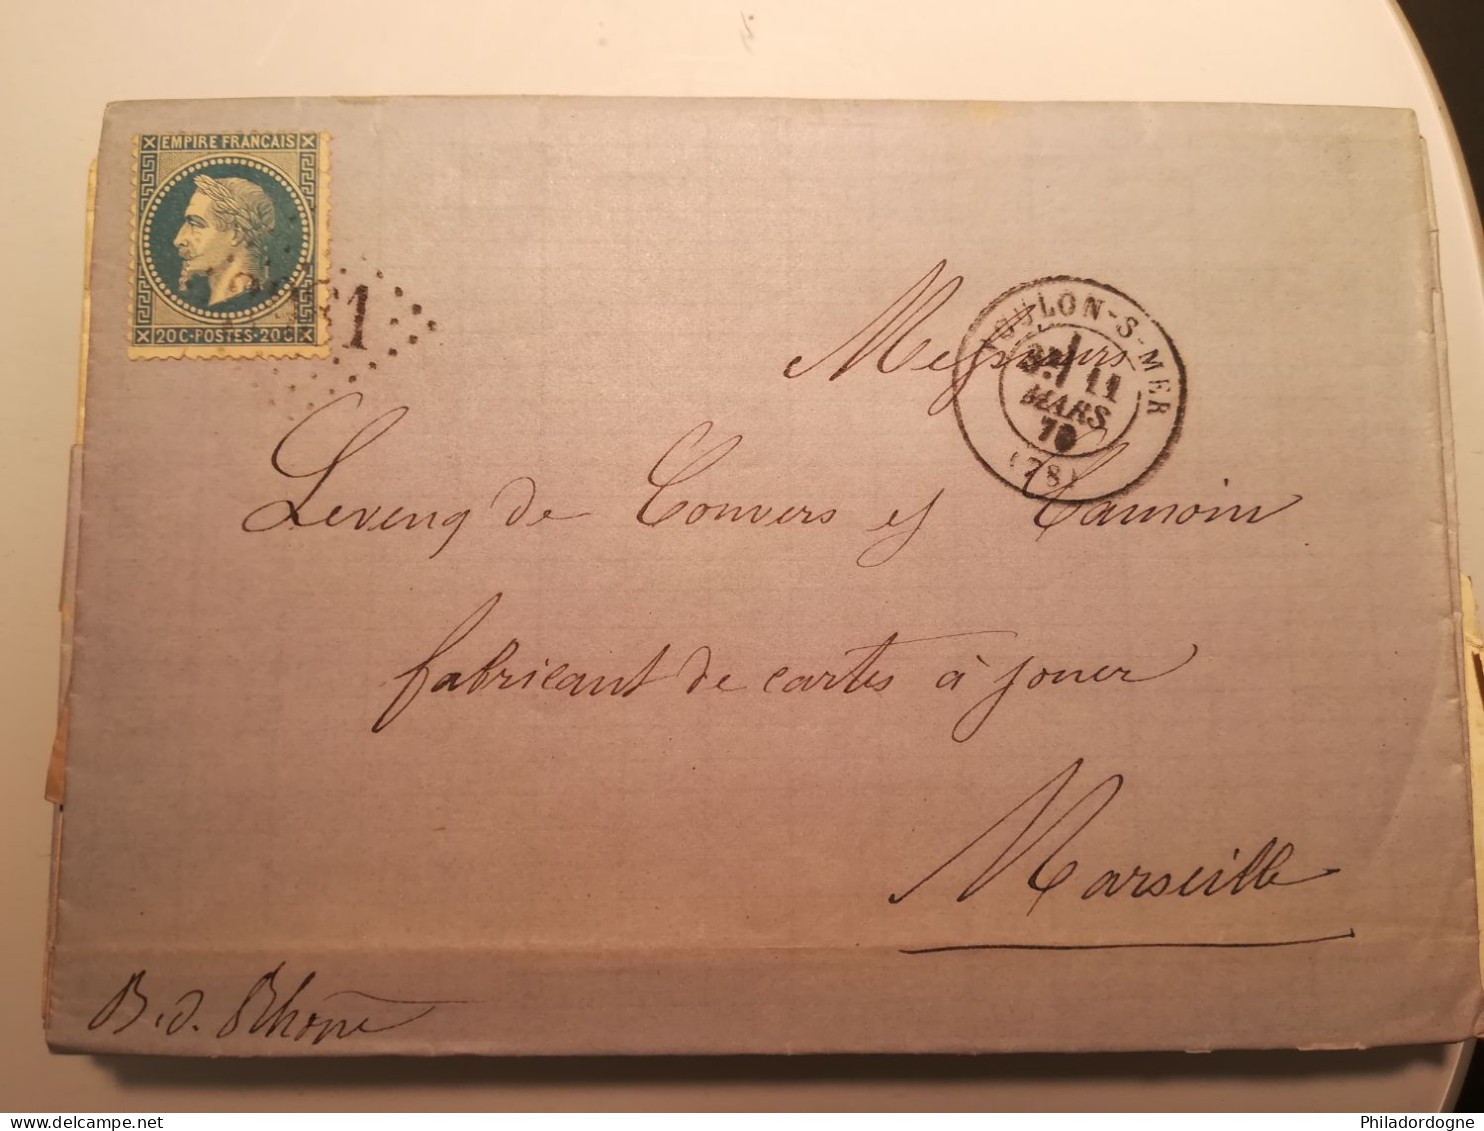 EMPIRE FRANCAIS
20 C · POSTES · 20 C
TOULON-S-MER
11
MARS
70
(78)
Messieurs
Levenq de Convers et Camoin
fabricant de cartes à jouer
Marseille
B. d. Rhône
delcampe.net
Philadordogne